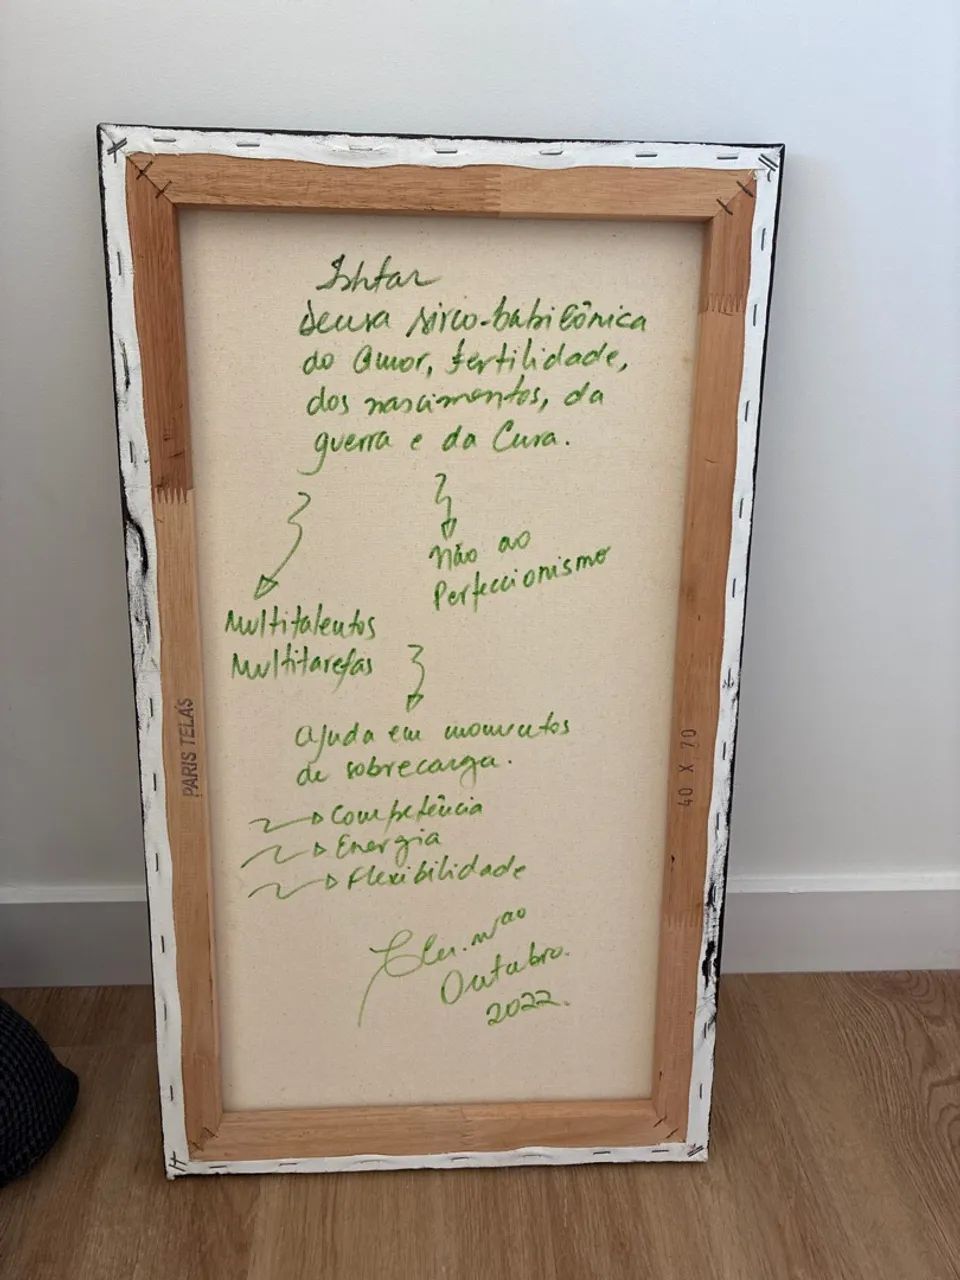 Ishtar
Deusa sírio-babilônica
do Amor, fertilidade,
dos nascimentos, da
guerra e da Cura.
Não ao
Perfeccionismo
Multitalentos
Multitarefas
Ajuda em momentos
de sobrecarga.
Competência
Energia
Flexibilidade
Outubro.
2022.
PARIS TELAS
40 X 70